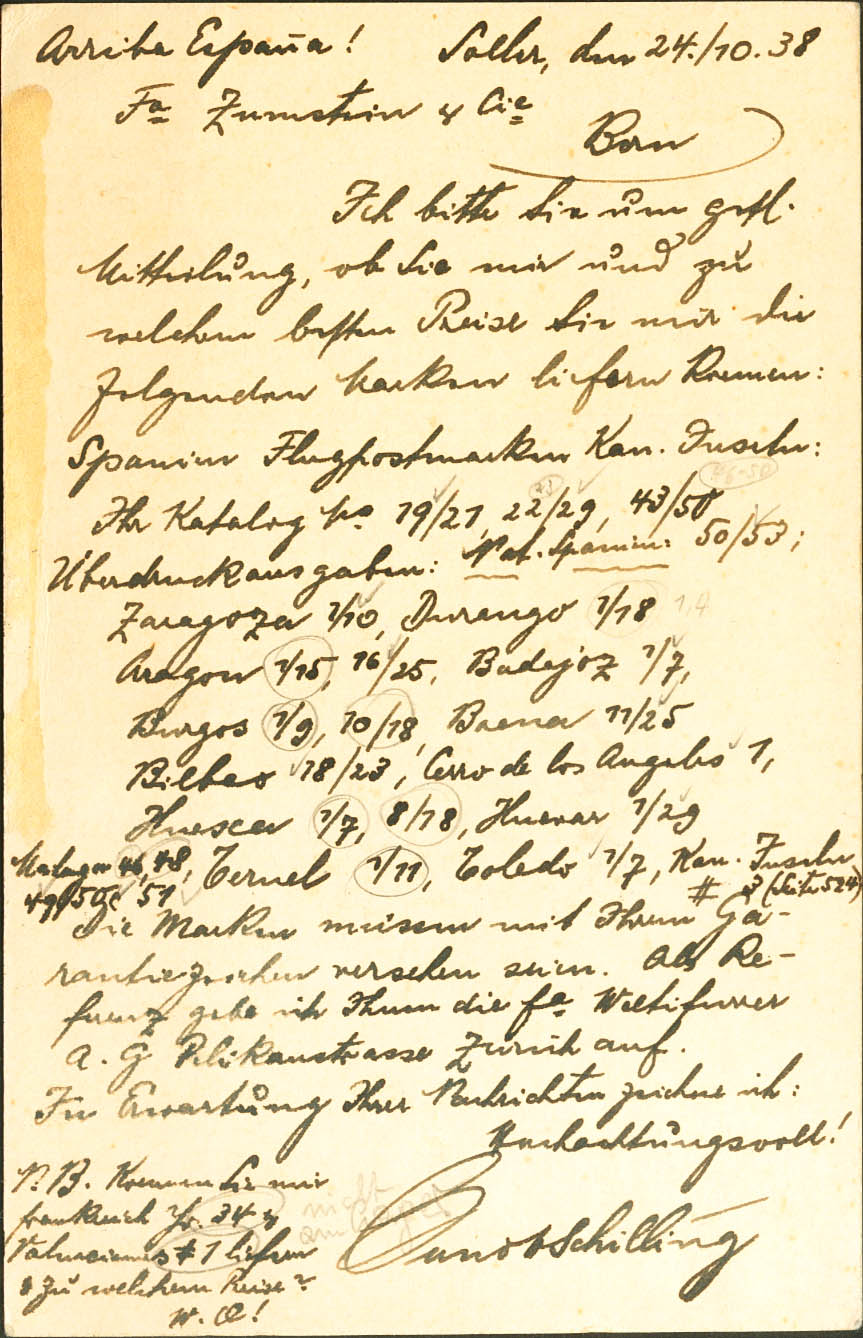 Arriba España! Soller, den 24./10.38
Fa Zumstein & Cie
Bern
Ich bitte Sie um gefl.
Mitteilung, ob Sie mir und zu
welchem besten Preise Sie mir die
folgenden Marken liefern können:
Spanien Flugpostmarken Kan. Inseln:
46-50
Ihr Katalog No 19/21, 22/29, 43/50
23
Überdruckausgaben: Nat. Spanien: 50/53;
Zaragoza 1/10, Durango 1/18 1,4
Aragon 1/15, 16/25, Badajoz 1/7,
Burgos 1/9, 10/18, Baena 11/25
Bilbao 18/23, Cerro de los Angeles 1,
Huesca 1/7, 8/18, Huevar 1/29
Malaga 46, 48, Teruel 1/11, Toledo 1/7, Kan. Inseln
49/50 51 # 3 (Seite 524)
Die Marken müssen mit Ihrem Ga-
rantiezeichen versehen sein. Als Re-
ferenz gebe ich Ihnen die fa Weltifurrer
A.G Pelikanstrasse Zürich auf.
In Erwartung Ihrer Nachrichten zeichne ich:
Hochachtungsvoll!
N.B. Können Sie mir
frankreich 34 &
# 1 liefern
& zu welchem Preise?
W. O!
nicht
am Lager
Schilling